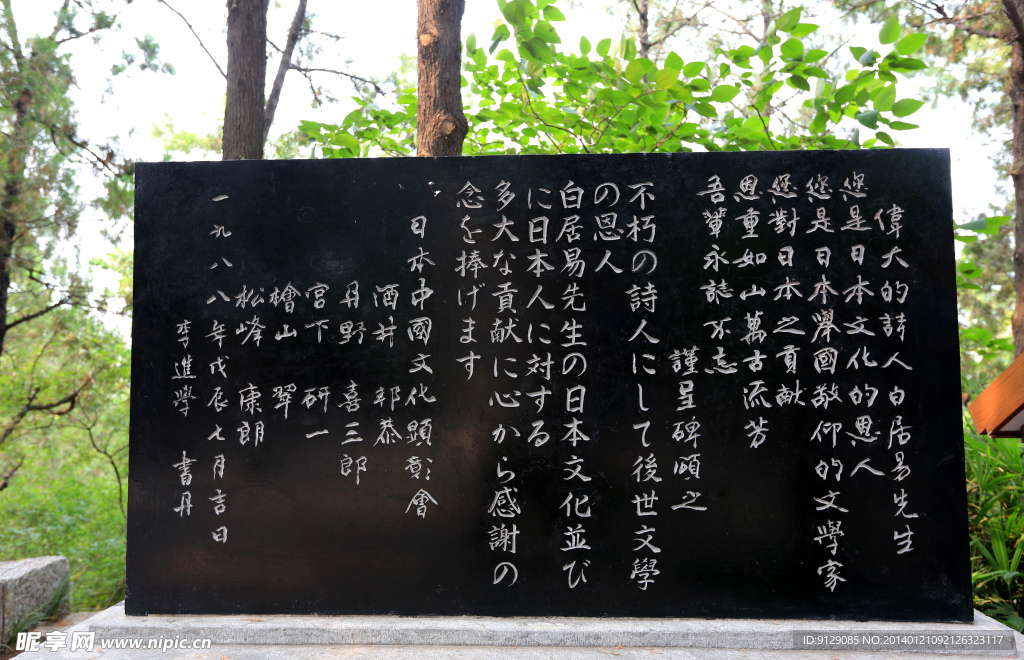 偉大的詩人白居易先生
您是日本文化的恩人
您是日本舉國敬仰的文學家
您對日本之貢献
恩重如山萬古流芳
吾輩永誌不忘
謹呈碑頌之
不朽の詩人にして後世文學
の恩人
白居易先生の日本文化並び
に日本人に対する
多大な貢献に心から感謝の
念を捧げます
日本中國文化顕彰會
酒井 邦恭
丹野 喜三郎
宮下 研一
檜山 翠
松峰 康朗
一九八八年戊辰七月吉日
李進學 書丹
昵享网 www.nipic.cn
ID:9129085 NO:20140121092126323117